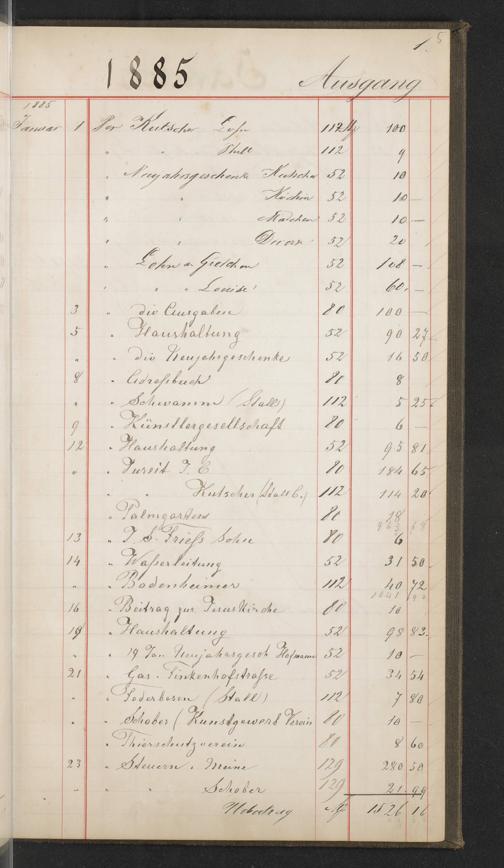 1.
5
1885 Ausgang
1885
Januar 1 Per Kutscher Lohn 112 100
" " Stall 112 9
" Neujahrsgeschenke Kutscher 52 10
" " Köchin 52 10 —
" " Mädchen 52 10 —
" " 52 20
" Lohn an Gretchen 52 108 —
" " " Louise 52 60. —
3 " div Ausgaben 80 100 —
5 " Haushaltung 52 90 27
" " div Neujahrsgeschenke 52 16 50
8 " Adreßbuch 80 8
" " Schwamm (Stall) 112 5 25
9 " Künstlergesellschaft 80 6 —
12 " Haushaltung 52 95 81
" " 80 184 65
" " Kutscher (Stall) 112 114 20
" Palmgarten 80 18
13 " J. S. Frieß Sohn 80 6
14 " Waßerleitung 52 31 50
" " Bodenheimer 112 40 72
16 " Beitrag zur 80 10
19 " Haushaltung 52 98 83
" " 19 Jan Neujahrsgesch Hofmann 52 10 —
21 " Gas - Finkenhofstraße 52 34 54
" " Federbesen (Stall) 112 7 80
" " Schober (Kunstgewerb Verein 80 10 —
" Thierschutzverein 80 8 60
23 " Steuern " Meine 129 280 50
" " " Schober 129 21 99
Uebertrag 1526 16